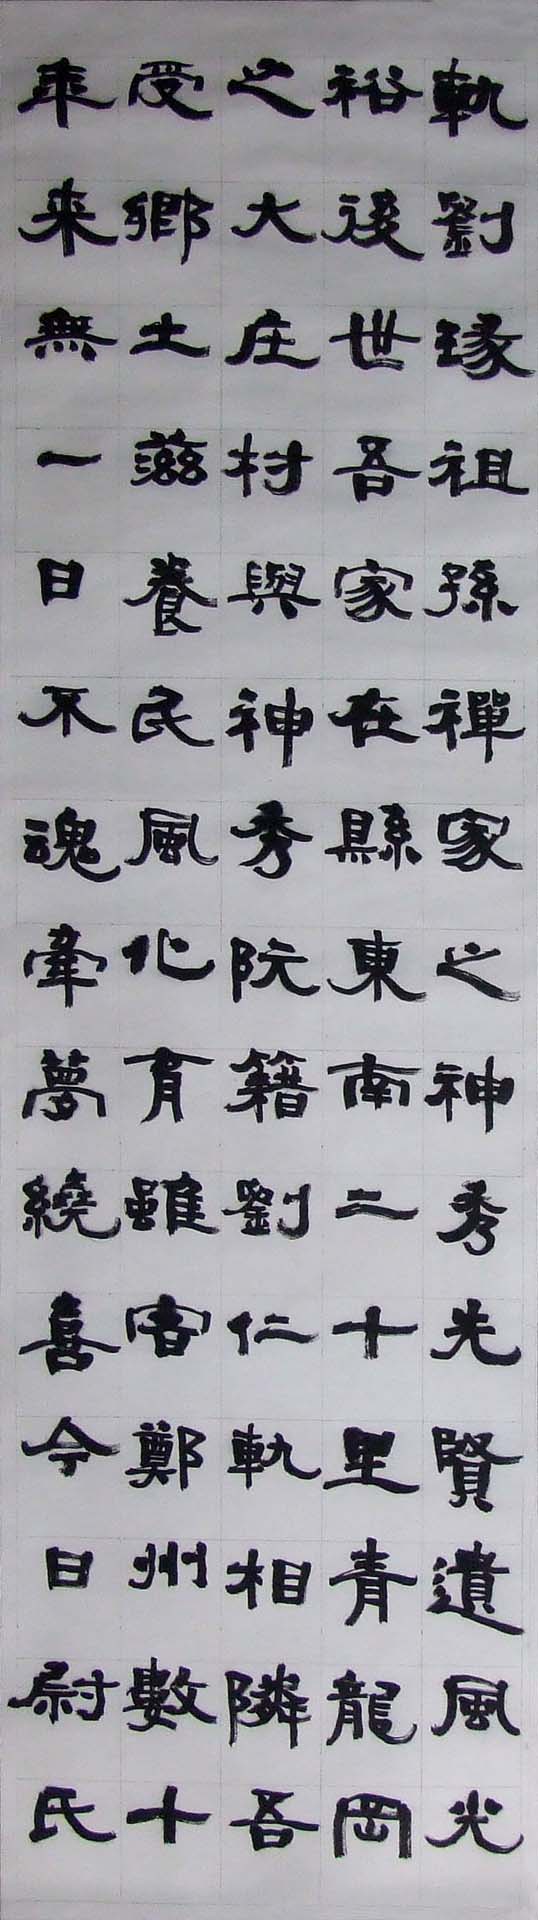 軌劉瑑祖孫禪家之神秀先賢遺風光
裕後世吾家在縣東南二十里青龍岡
之大庄村與神秀阮籍劉仁軌相隣吾
受鄉土滋養民風化育雖客鄭州數十
年来無一日不魂牽夢繞喜今日尉氏